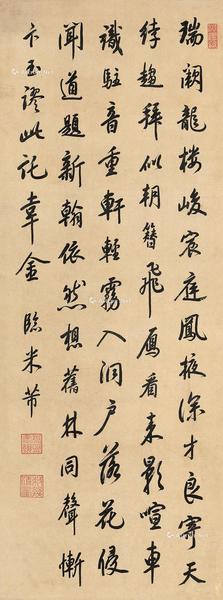 瑞闕龍樓峻宸庭鳳掖深才良寄天
綍趨拜似朝簪飛鳧看来影喧車
識駐音重軒輕霧入洞户落花侵
聞道題新翰依然想舊林同聲慚
卞玉謬此託韋金 臨米芾